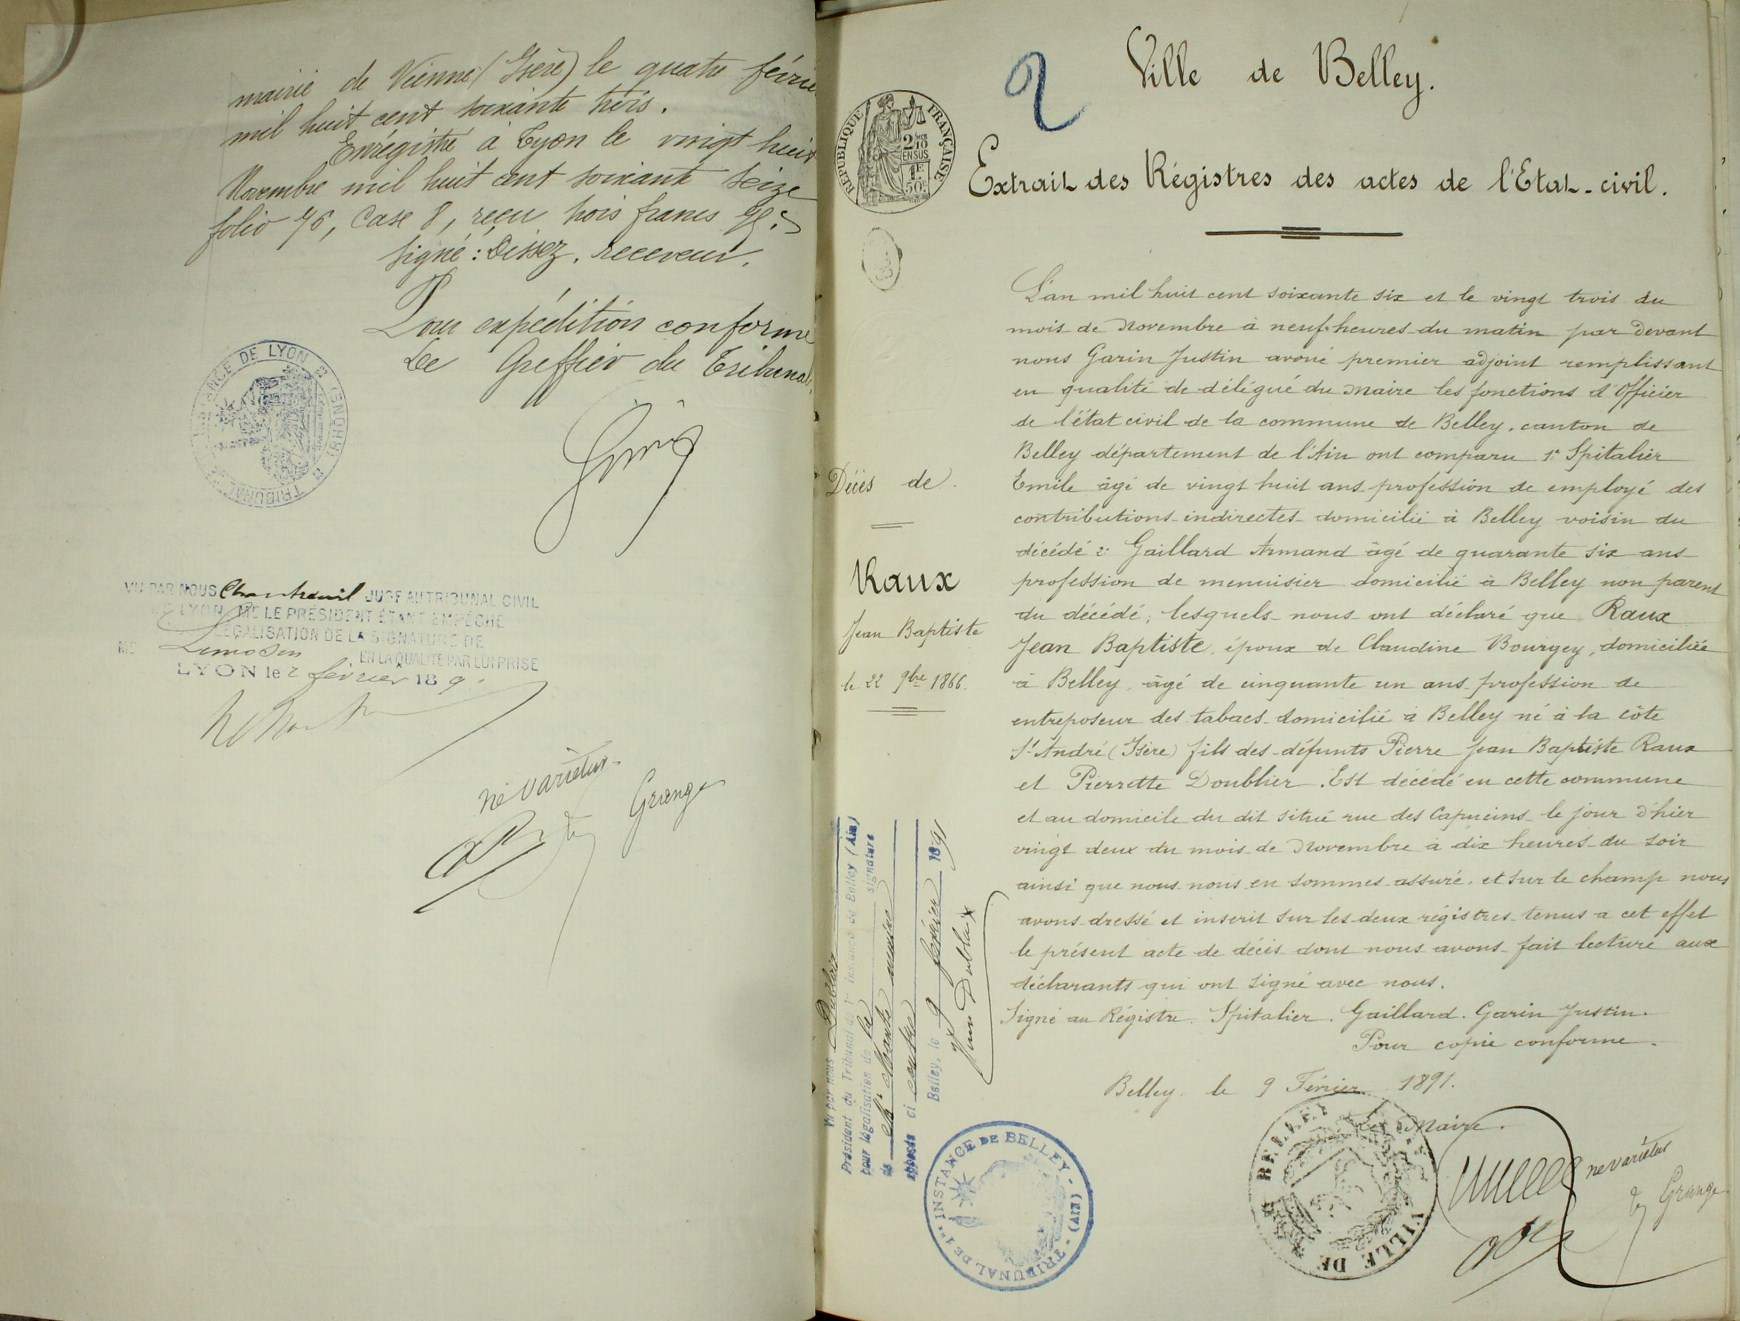 mairie de Vienne (Isère) le quatre février
mil huit cent soixante trois.
Enregistré à Lyon le vingt huit
Novembre mil huit cent soixante seize
folio 76, Case 8, reçu trois francs 75 c
signé: Dissez, receveur.
Pour expédition conforme
Le Greffier du Tribunal
TRIBUNAL DE 1RE INSTANCE DE LYON (RHÔNE)
VU PAR NOUS Chantreuil JUGE AU TRIBUNAL CIVIL
DE LYON, MR LE PRÉSIDENT ÉTANT EMPÊCHÉ
LÉGALISATION DE LA SIGNATURE DE
ME Limosin EN LA QUALITÉ PAR LUI PRISE
LYON le 2 février 189
ne varietur
Grange
2
Ville de Belley.
RÉPUBLIQUE FRANÇAISE
Extrait des Régistres des actes de l'Etat-civil.
Décès de
Raux
Jean Baptiste
le 22 9bre 1866.
L'an mil huit cent soixante six et le vingt trois du
mois de Novembre à neuf heures du matin par devant
nous Garin Justin avoué premier adjoint remplissant
en qualité de délégué du Maire les fonctions d'Officier
de l'état civil de la commune de Belley, canton de
Belley département de l'Ain ont comparu 1° Spitalier
Emile âgé de vingt huit ans profession de employé des
contributions indirectes domicilié à Belley voisin du
décédé 2° Gaillard Armand âgé de quarante six ans
profession de menuisier domicilié à Belley non parent
du décédé; lesquels nous ont déclaré que Raux
Jean Baptiste, époux de Claudine Bourgey, domiciliée
à Belley, âgé de cinquante un ans profession de
entreposeur des tabacs domicilié à Belley né à la côte
St André (Isère) fils des défunts Pierre Jean Baptiste Raux
et Pierrette Doublier. Est décédé en cette commune
et au domicile du dit situé rue des Capucins le jour d'hier
vingt deux du mois de Novembre à dix heures du soir
ainsi que nous nous en sommes assuré. et sur le champ nous
avons dressé et inscrit sur les deux régistres tenus a cet effet
le présent acte de décès dont nous avons fait lecture aux
déclarants qui ont signé avec nous.
Signé au Régistre. Spitalier. Gaillard. Garin Justin.
Pour copie conforme.
Belley le 9 Février 1891.
Le Maire.
VILLE DE BELLEY
ne varietur
Grange
Vu par nous
Président du Tribunal de 1re instance de Belley (Ain)
pour légalisation de la signature
de
apposée ci contre
Belley, le 9 février 1891
TRIBUNAL DE 1RE INSTANCE DE BELLEY (AIN)